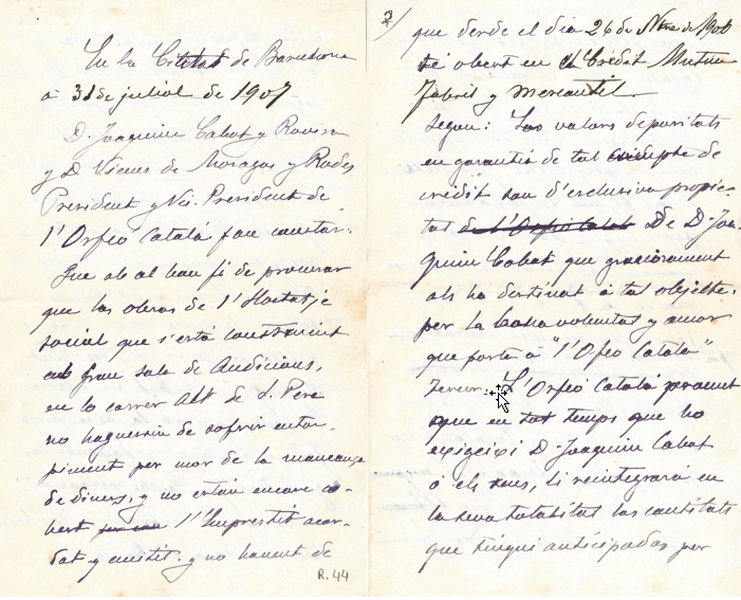 En la Ciutat de Barcelona
a 31 de juliol de 1907
D. Joaquim Cabot y Rovira
y D. Vicens de Moragas y Rodes
President y Vis-President de
l'Orfeó Catalá fan constar:
Que ab al bon fi de procurar
que las obras de l'Hostatje
social que s'está construint
ab Gran sala de Audicions,
en lo carrer Alt de S. Pere
no haguessin de sofrir entor-
piment per mor de la mancança
de diners, y no estan encare co-
bert l'Emprestit acor-
dat y emitit. y no havent de
R. 44
2/ que desde el dia 26 de Nbre de 1906
té obert en el Crédit Mutuo
Fabril y Mercantil.
Segon: Los valors depositats
en garantía de tal compte de
crédit son d'exclusiva propie-
tat de l'Orfeó Catalá De D. Joa-
quim Cabot que graciosament
als ha destinat á tal objecte.
per la bona voluntat y amor
que porta á "l'Orfeo Catalá"
Tercer: L'Orfeó Catalá promet
que en tot temps que ho
exigeixi D. Joaquim Cabot
ó els seus, li reintegrará en
la seva totalitat las cantitats
que tingui anticipadas per